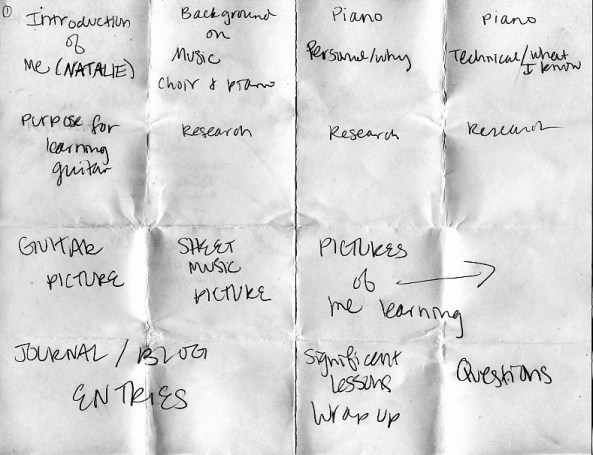 ①
Introduction
of
me (NATALIE)
Background
on
Music
Choir & piano
Piano
Personal/why
Piano
Technical/what
I know
Purpose for
learning
guitar
Research
Research
Research
GUITAR
PICTURE
SHEET
MUSIC
PICTURE
PICTURES
of
me learning
JOURNAL / BLOG
ENTRIES
Significant
lessons
Wrap up
Questions